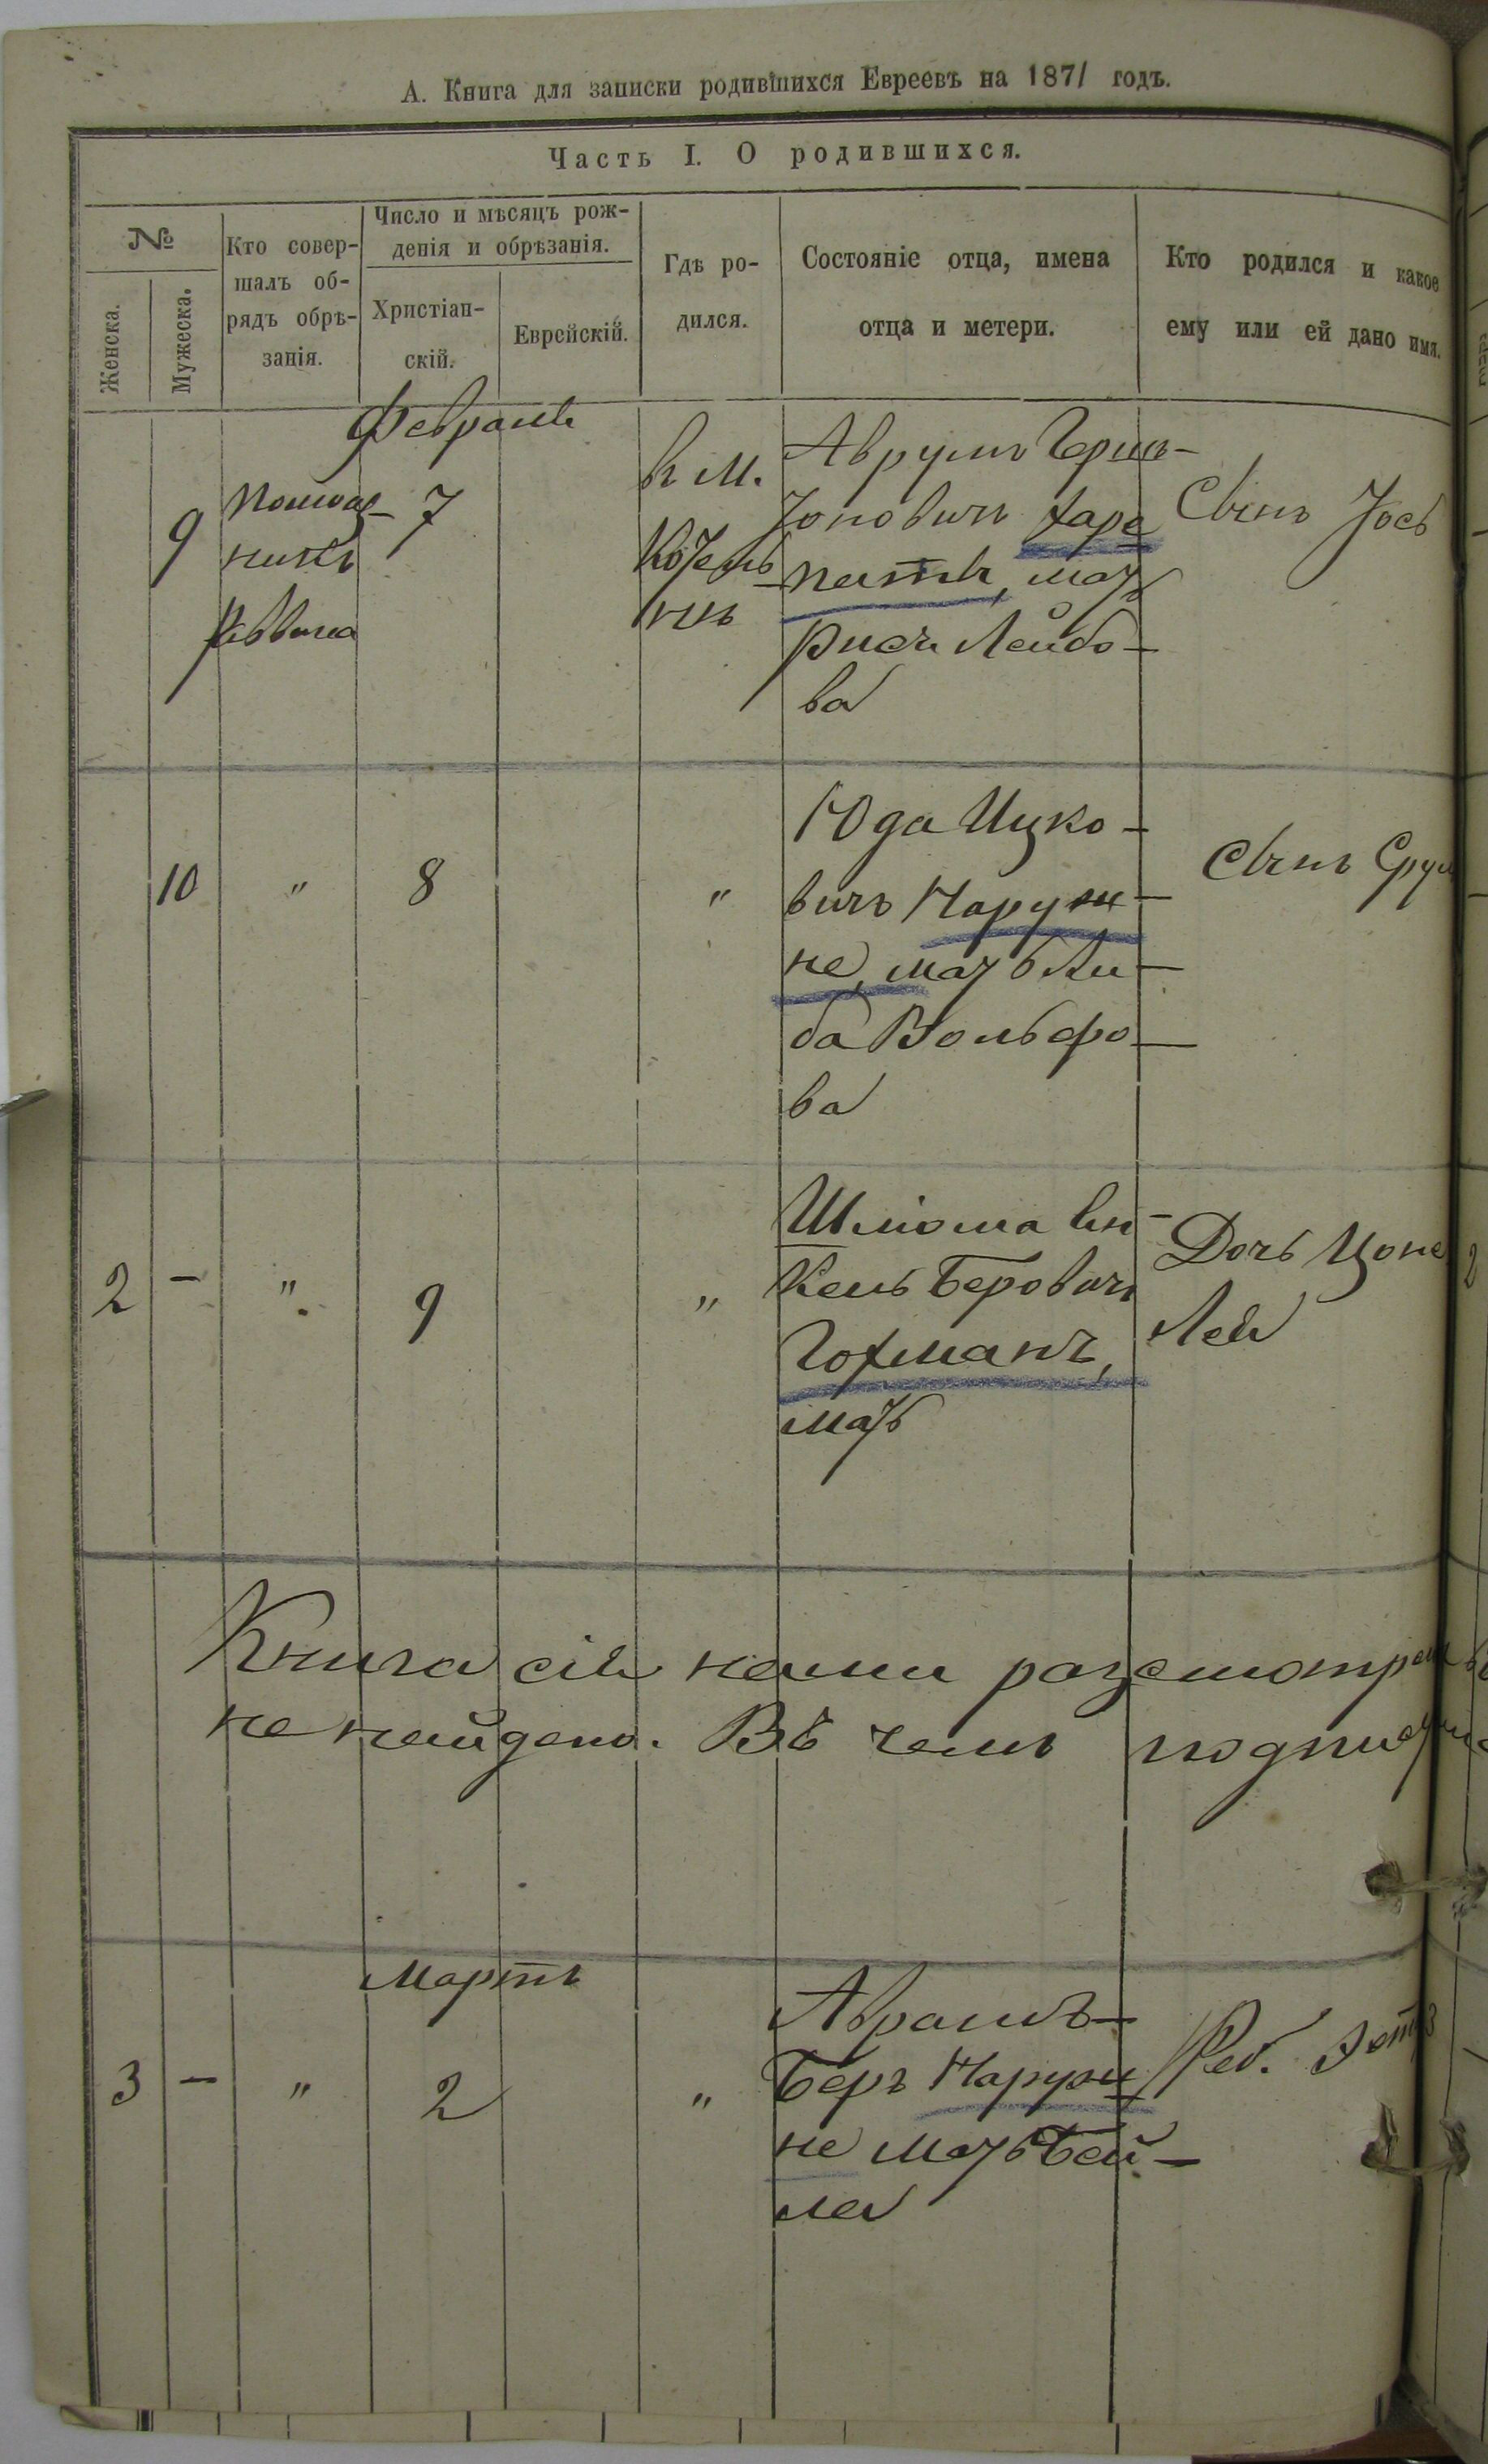 А. Книга для записки родившихся Евреевъ на 1871 годъ.
Часть I. О родившихся.
№
Женска.
Мужеска.
Кто совер-
шалъ об-
рядъ обрѣ-
занія.
Число и мѣсяцъ рож-
денія и обрѣзанія.
Христіан-
скій.
Еврейскій.
Гдѣ ро-
дился.
Состояніе отца, имена
отца и метери.
Кто родился и какое
ему или ей дано имя.
Февраль
9
Помощ-
никъ
Раввина
7
в м.
Аврумъ Герш-
Іоповичъ
мать
Лейбо-
ва
Сынъ Іось
10
"
8
"
Юда Ицко-
вичъ Наруж-
не, мать Ли-
ба Вольфо-
ва
Сынъ Срул
2
-
"
9
"
Шліома
Беровичъ
Гофманъ,
мать
Дочь
Лея
Книга сія нами разсмотрен
не найдено. Въ чемъ подписуе
Мартъ
3
-
"
2
"
Абрамъ-
Беръ Наруж
не мать Бей-
ла
Реб.